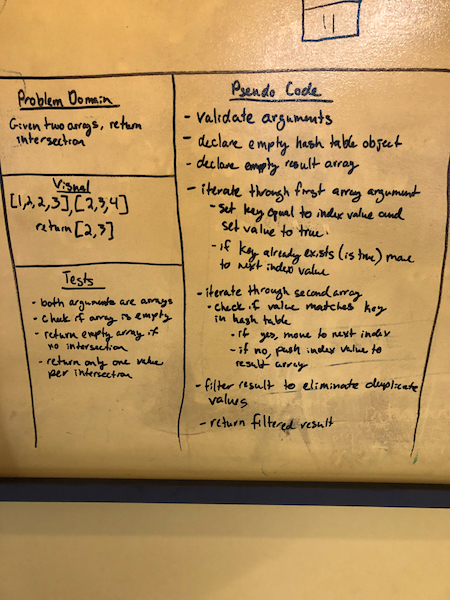 11
Problem Domain
Given two arrays, return
intersection
Visual
[1,2,2,3],[2,3,4]
return [2,3]
Tests
- both arguments are arrays
- check if array is empty
- return empty array if
no intersection
- return only one value
per intersection
Pseudo Code
- validate arguments
- declare empty hash table object
- declare empty result array
- iterate through first array argument
- set key equal to index value and
set value to true.
- if key already exists (is true) move
to next index value
- iterate through second array
- check if value matches key
in hash table
- if yes, move to next index
- if no, push index value to
result array
- filter result to eliminate duplicate
values
- return filtered result